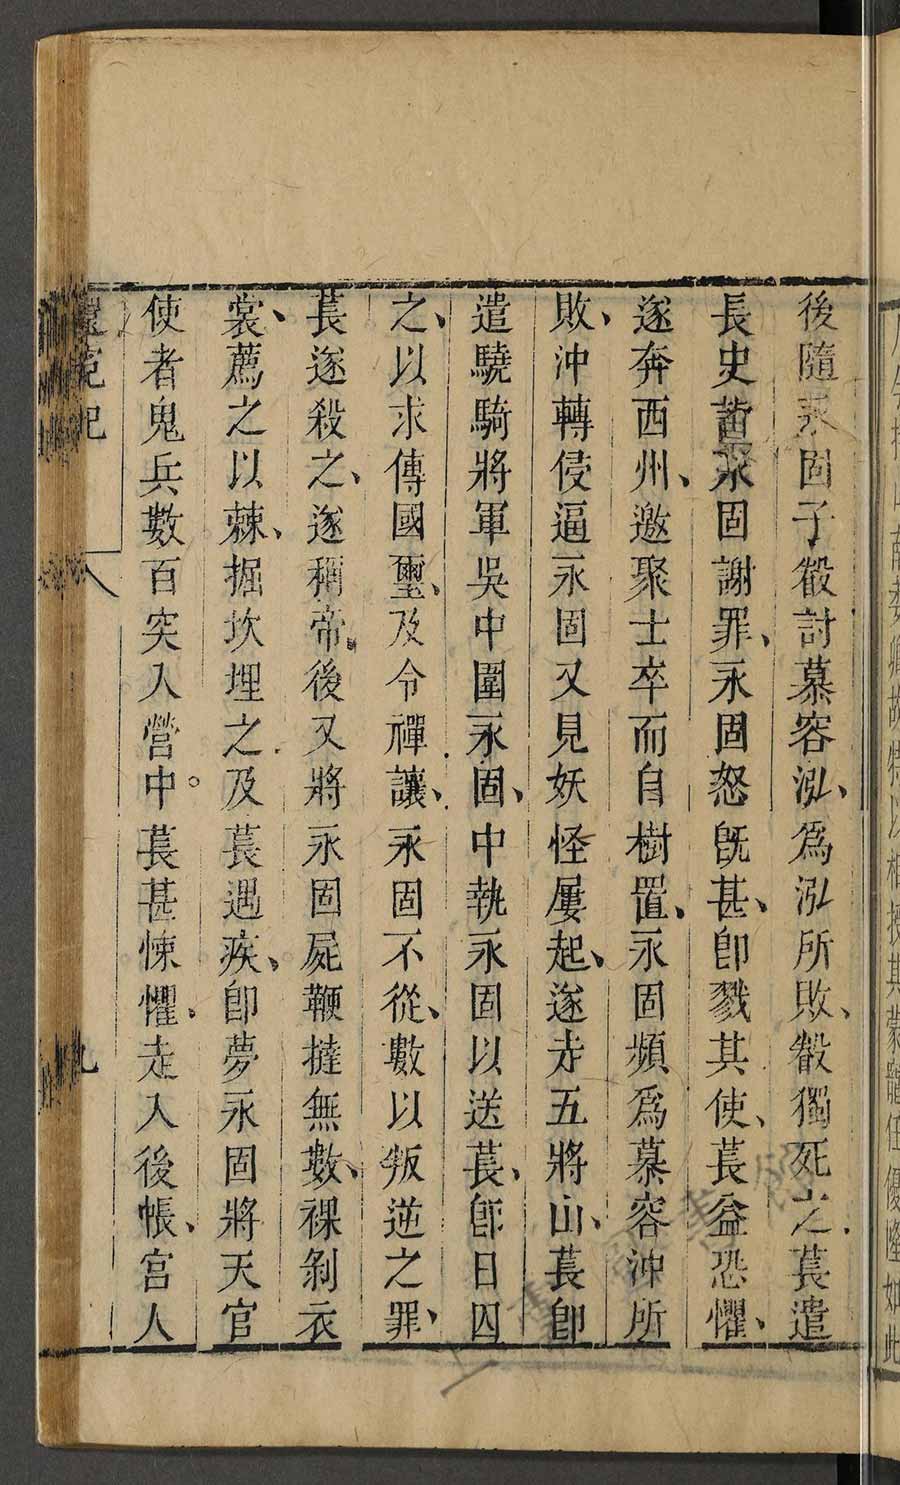 後隨永固子叡討慕容泓、爲泓所敗、叡獨死之、萇遣
長史詣永固謝罪、永固怒旣甚、卽戮其使、萇益恐懼、
遂奔西州、邀聚士卒而自樹置、永固頻爲慕容沖所
敗、沖轉侵逼永固又見妖怪屢起、遂走五將山、萇卽
遣驍騎將軍吳中圍永固、中執永固以送萇、卽日囚
之、以求傳國璽、及令禪讓、永固不從、數以叛逆之罪、
萇遂殺之、遂稱帝後又將永固屍鞭撻無數、裸剝衣
裳、薦之以棘、掘坎埋之及萇遇疾、卽夢永固將天官
使者鬼兵數百突入營中。萇甚悚懼、走入後帳、宮人
還冤記 八 九